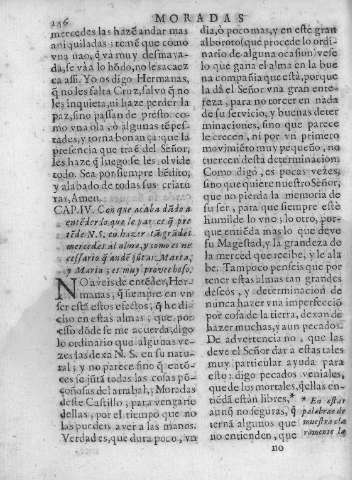 236
MORADAS
mercedes las hazẽ andar mas
aniquiladas: temẽ que como
vna nao, q̃ va muy demaſya-
da, ſe và a lo hõdo, no les acaez
ca aſsi. Yo os digo Hermanas,
q̃ no les falta Cruz, ſalvo q̃ no
les inquieta, ni haze perder la
paz, ſino paſſan de preſto como
vna ola, ò algunas tẽpeſ-
tades, y torna bonança: que la
preſencia que traẽ del Señor,
les haze q̃ luego ſe les olvide
todo. Sea por ſiempre bẽdito,
y alabado de todas ſus criatu-
ras, Amen.
CAP. IV. Con que acaba dãdo a
entẽder lo que le parece q̃ pre-
tẽde N.S. en hazer tã grãdes
mercedes al alma, y como es ne-
ceſſario q̃ andẽ jũtas Marta,
y Maria: es muy provechoſo.
NO aveis de entẽder, Her-
manas, q̃ ſiempre en vn
ſer eſtà eſtos efectos, q̃ he di-
cho en eſtas almas; que por-
eſſo dõde ſe me acuerda, digo
lo ordinario que algunas ve-
zes las dexa N. S. en ſu natu-
ral; y no parece ſino q̃ entõ-
ces ſe jũtã todas las coſas põ-
çoñoſas del arrabal, y Moradas
deſte Caſtillo, para vengarſe
dellas, por el tiempo que no
las pueden aver a las manos.
Verdad es, que dura poco, vn
dia, ò poco mas, y en eſte gran
alboroto (que procede lo ordi-
nario de alguna ocaſion) veſe
lo que gana el alma en la bue
na compañia que eſtà, porque
la dà el Señor vna gran ente-
reza, para no torcer en nada
de ſu ſervicio, y buenas deter
minaciones, ſino que parece
le crecen, ni por vn primero
movimiẽto muy pequeño, no
tuercen deſta determinacion.
Como digo, es pocas vezes,
ſino que quiere nueſtro Señor,
que no pierda la memoria de
ſu ſer, para que ſiempre eſtè
humilde lo vno; lo otro, por-
que entiẽda mas lo que deve
ſu Mageſtad, y la grandeza de
la merced que recibe, y le ala
be. Tampoco penſeis que por
tener eſtas almas tan grandes
deſeos, y determinacion de
nunca hazer vna imperfecciõ
por coſa de la tierra, dexan de
hazer muchas, y aun pecados.
De advertencia no, que las
deve el Señor dar a eſtas tales
muy particular ayuda para
eſto: digo pecados veniales,
que de los mortales, q̃ ellas en-
tiẽdã eſtàn libres,*
aunq̃ no ſeguras, q̃
ternà algunos que
no entienden, que
* En eſtas
palabras de
mueſtra cla
ramente la
no